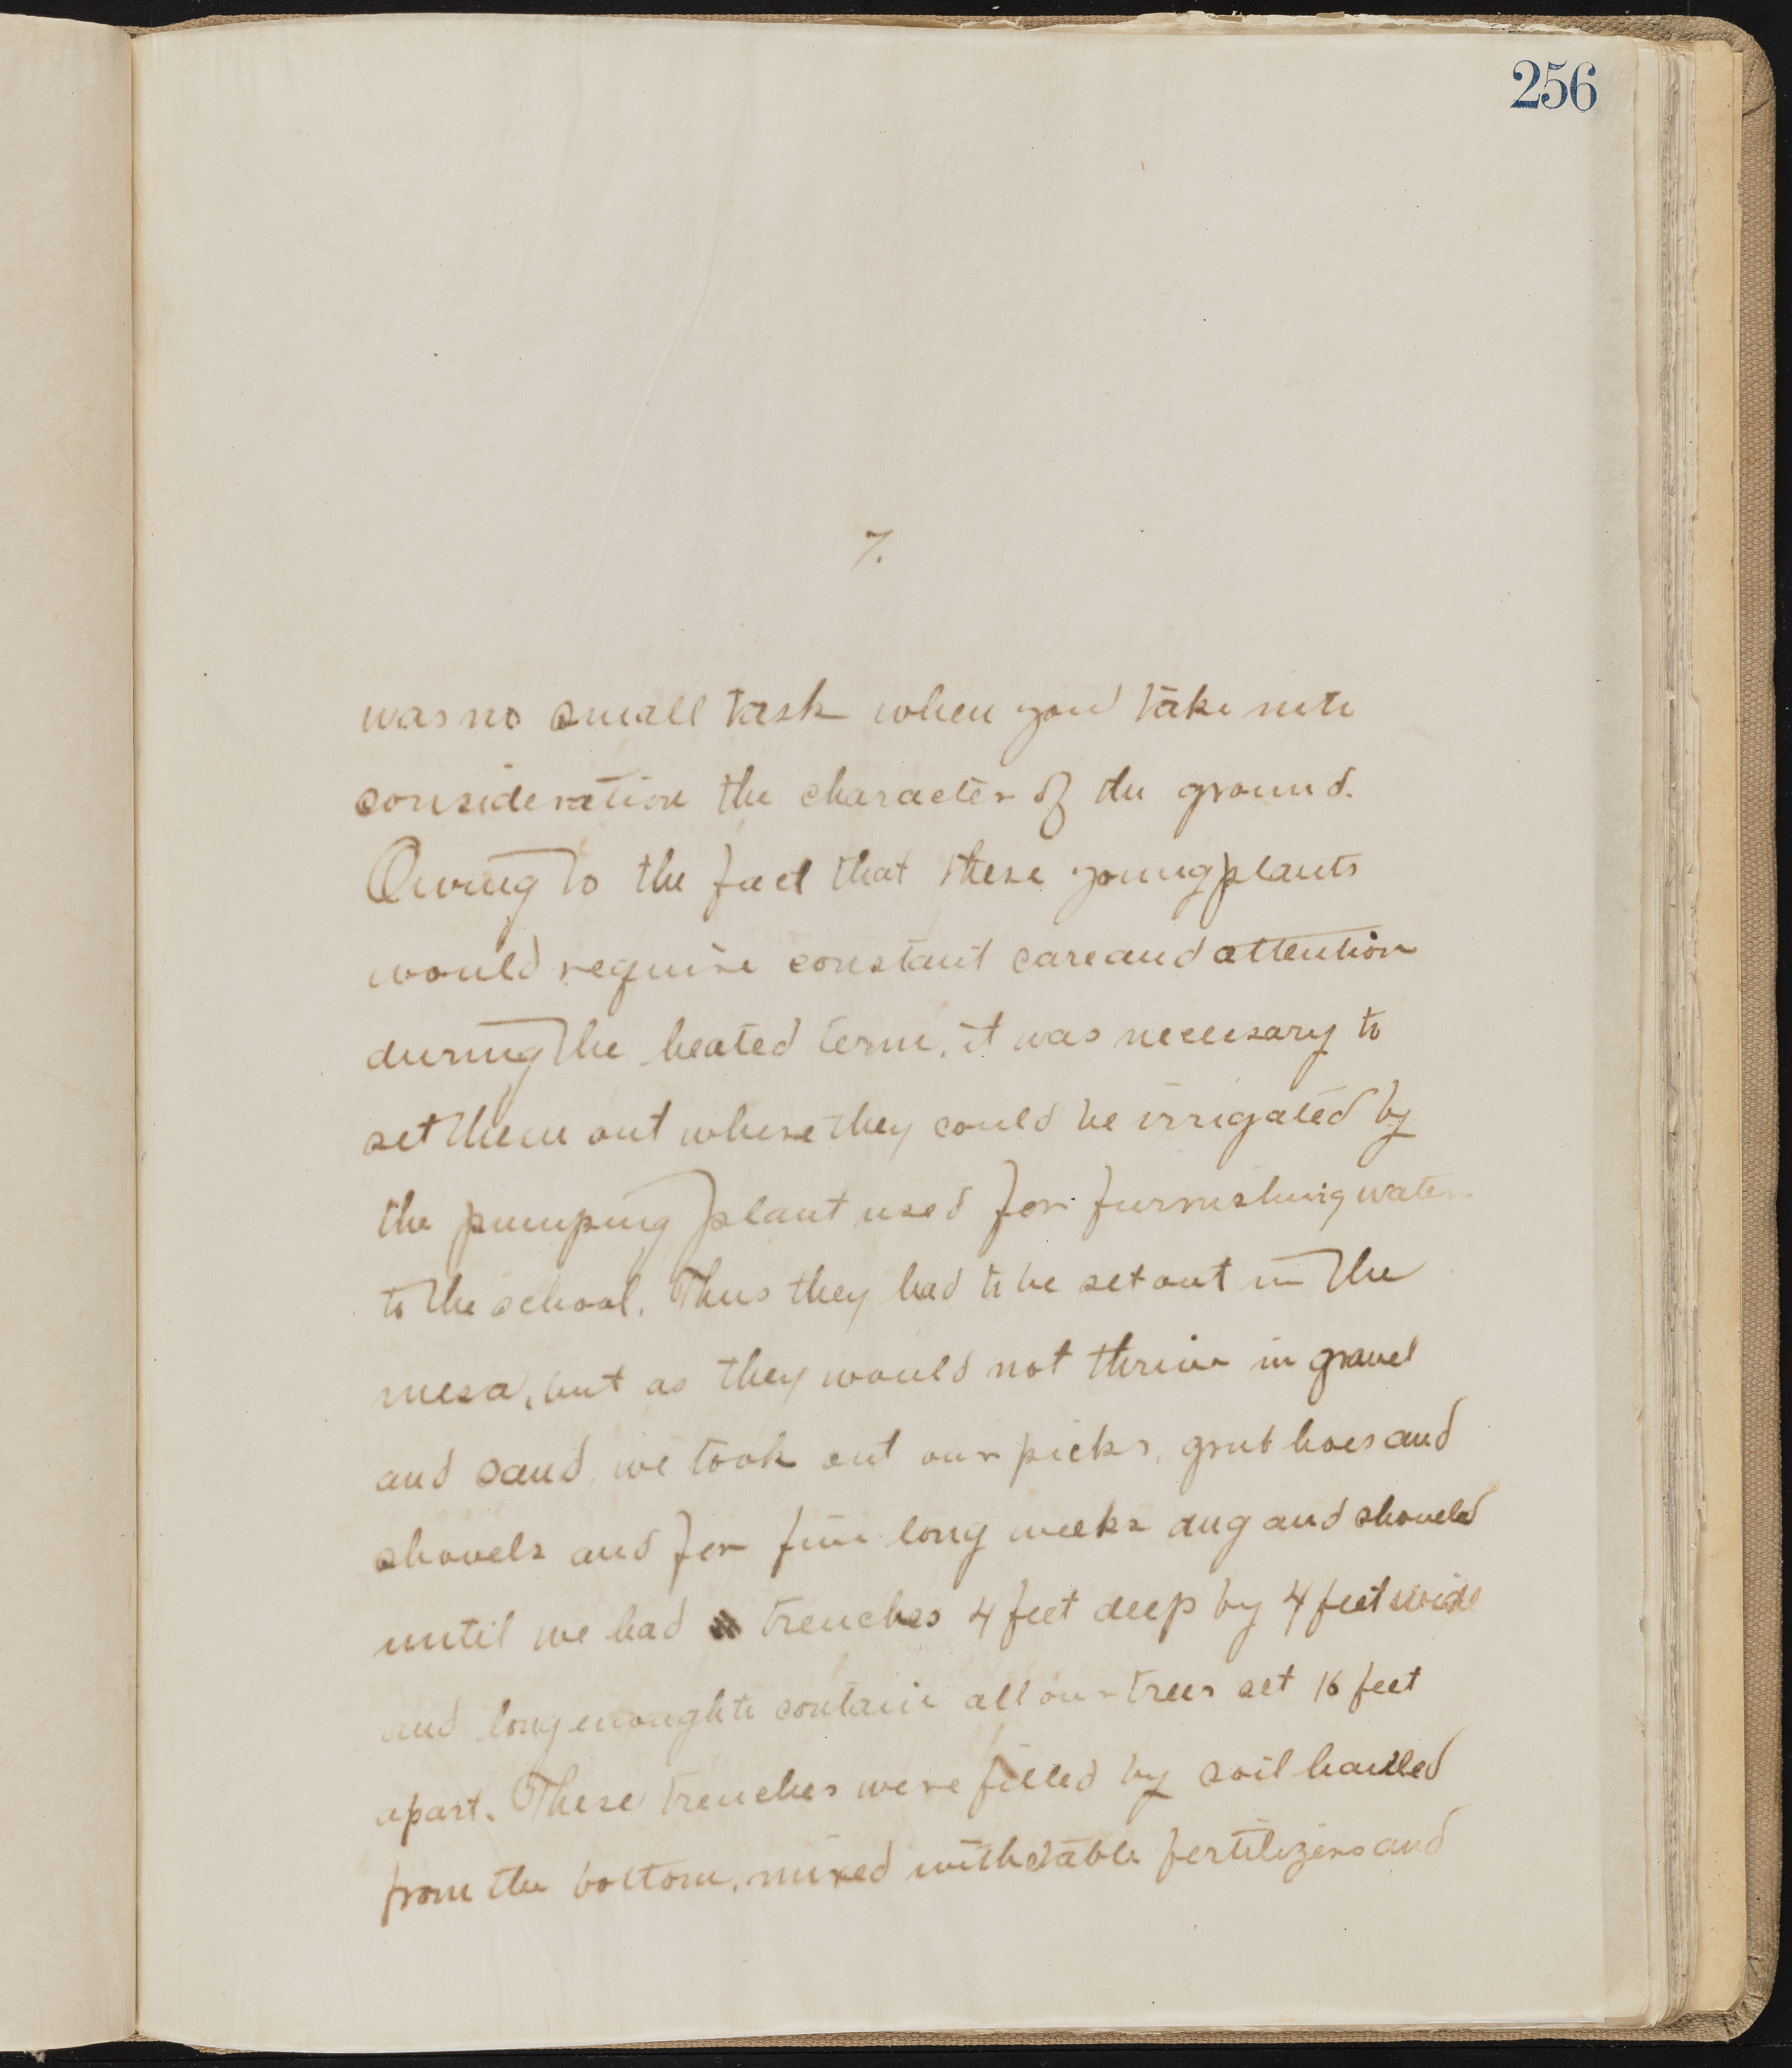 256
7.
was no small task when you take into
consideration the character of the ground.
Owing to the fact that these young plants
would require constant care and attention
during the heated term, it was necessary to
set them out where they could be irrigated by
the pumping plant used for furnishing water
to the school. Thus they had to be set out in the
mesa, but as they would not thrive in gravel
and sand, we took out our picks, grub hoes and
shovels and for five long weeks dug and shoveled
until we had trenches 4 feet deep by 4 feet wide
and long enough to contain all our trees set 16 feet
apart. These trenches were filled by soil hauled
from the bottom, mixed with stable fertilizers and